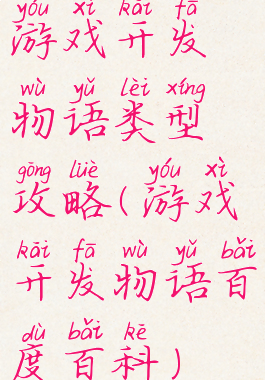 yóu xì kāi fā
游戏开发
wù yǔ lèi xíng
物语类型
gōng lüè yóu xì
攻略(游戏
kāi fā wù yǔ bǎi
开发物语百
dù bǎi kē
度百科)